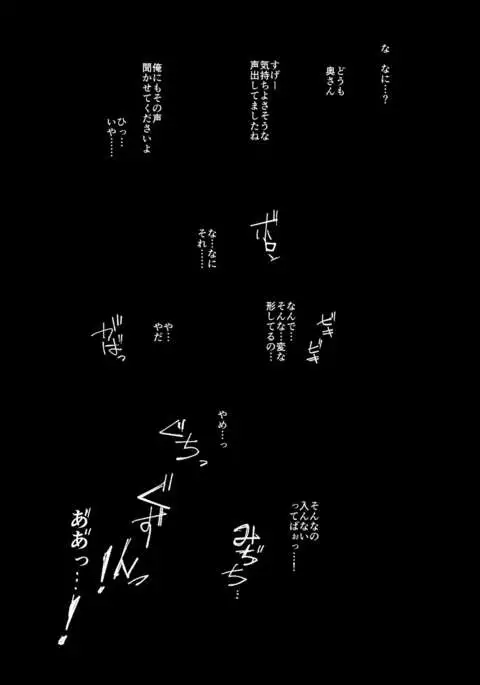 な　なに…?
どうも
奥さん
すげー
気持ちよさそうな
声出してましたね
俺にもその声
聞かせてくださいよ
ひっ…
いや……
ボロン
な…なに
それ……
ビキ
ビキ
なんで…
そんな…変な
形してるの…
や…
やだ
がばっ
やめ…っ
ぐちっ
ぐずんっ!!
そんなの
入んない
ってばぉっ…!
みぢぢ…
あ゛あ゛っ…!